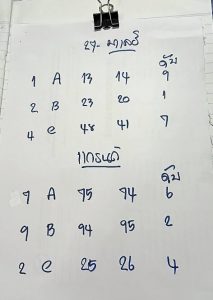 27- มาเลย์
ดับ
1 A 13 14 9
2 B 23 20 1
4 C 48 41 7
แกรนด์
ดับ
7 A 75 74 6
9 B 94 95 2
2 C 25 26 4